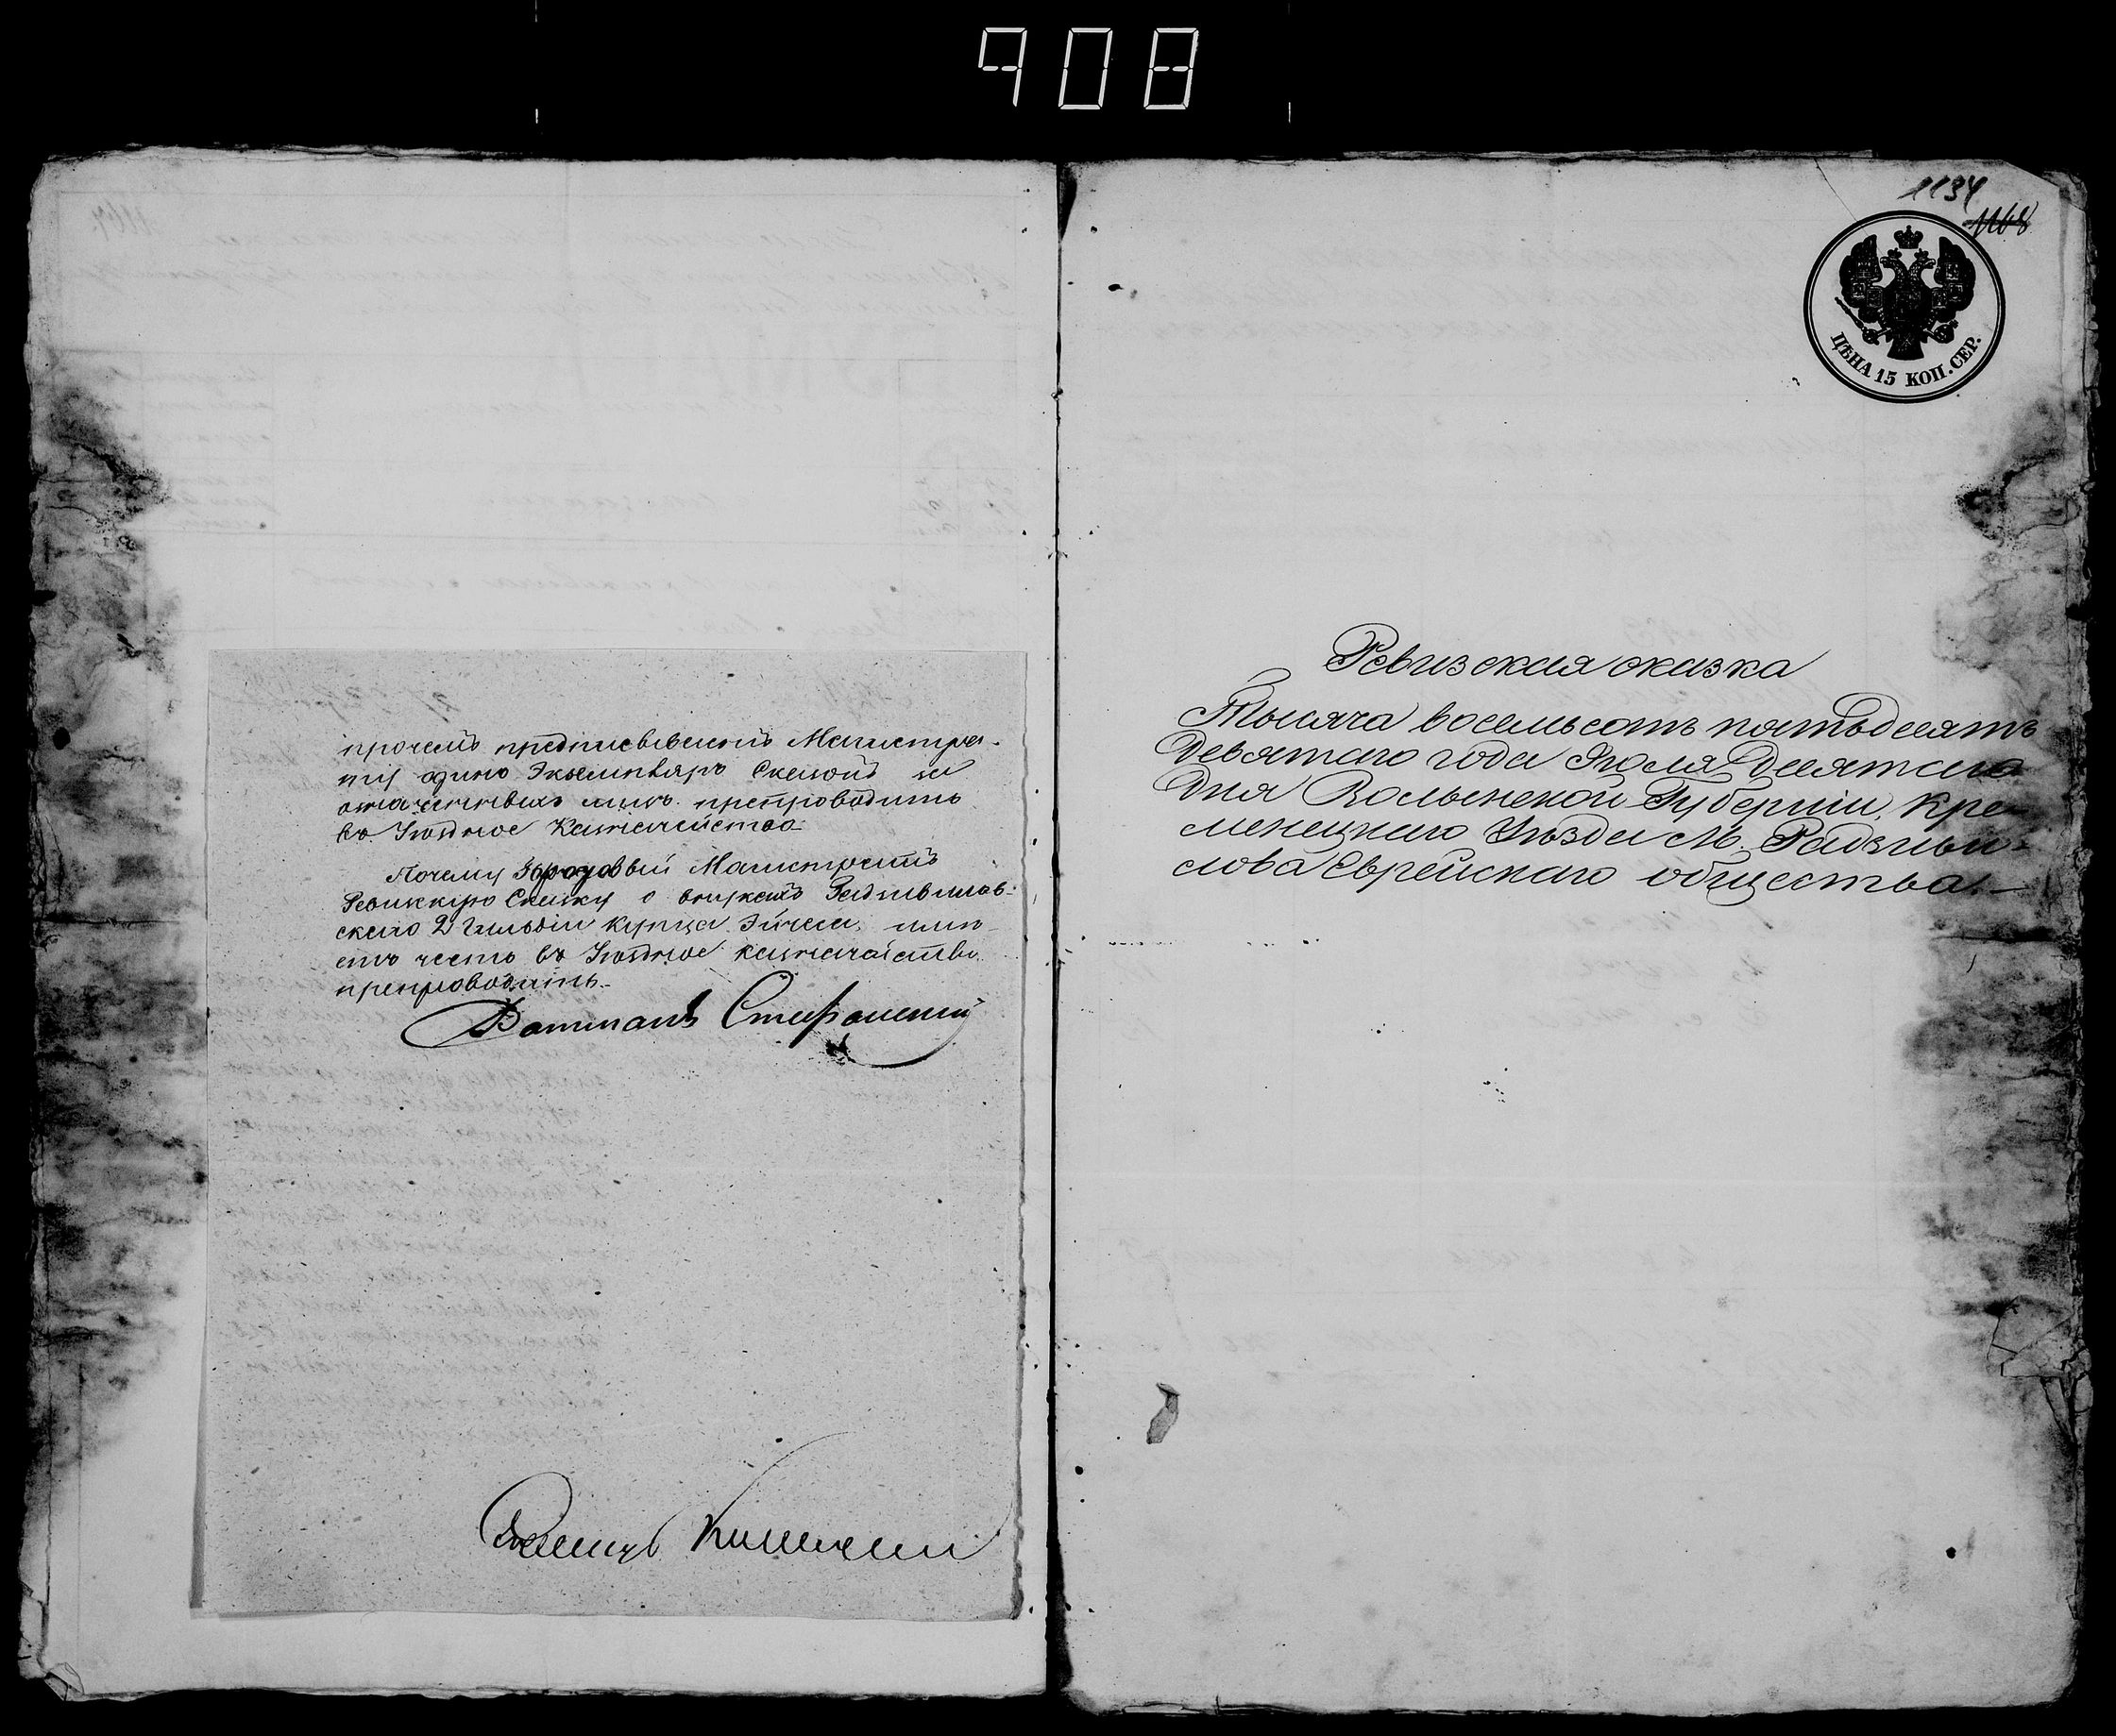 908
прочемъ предписавшимъ Магистра-
ту одинъ Экземпляръ Сказокъ на
означенныхъ лицъ препроводить
въ Уѣздное Казначейство
Почему Городовый Магистратъ
Ревизкую Скаску о внукахъ Радзивилов-
скаго 2 Гильдіи Купца имѣ-
етъ честь въ Уѣздное казначейство
препроводить.
Ратманъ
1134
1168
ЦѢНА 15 КОП. СЕР.
Ревизская сказка
Тысяча восемьсотъ пятьдесятъ
девятаго года Іюля Десятаго
Дня Волынской Губерніи, Кре-
менецкаго Уѣзда М. Радзиви-
лова Еврейскаго общества.—